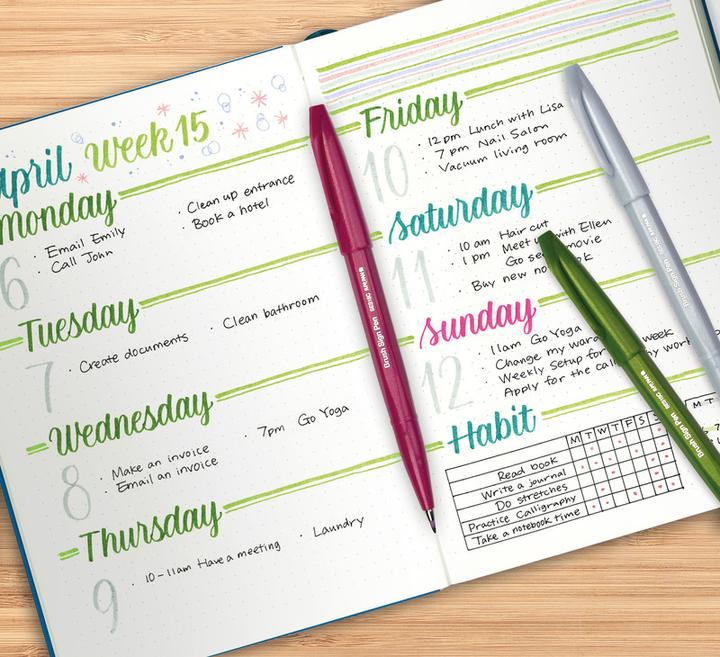 April Week 15
Monday
6
· Email Emily
· Call John
· Clean up entrance
· Book a hotel
Tuesday
7
· Create documents
· Clean bathroom
Wednesday
8
· Make an invoice
· Email an invoice
· 7pm Go Yoga
Thursday
9
· 10-11am Have a meeting
· Laundry
Friday
10
· 12pm Lunch with Lisa
· 7 pm Nail Salon
· Vacuum living room
Saturday
11
· 10 am Hair cut
· 1 pm Meet with Ellen
Go movie
· Buy new
Sunday
12
· 11am Go Yoga
· Change my week
· Weekly Setup for
· Apply for the work
Habit
M T W T F S S
Read book
Write a journal
Do stretches
Practice Calligraphy
Take a notebook time
M T
Brush Sign Pen
Brush Sign Pen
Brush Sign Pen